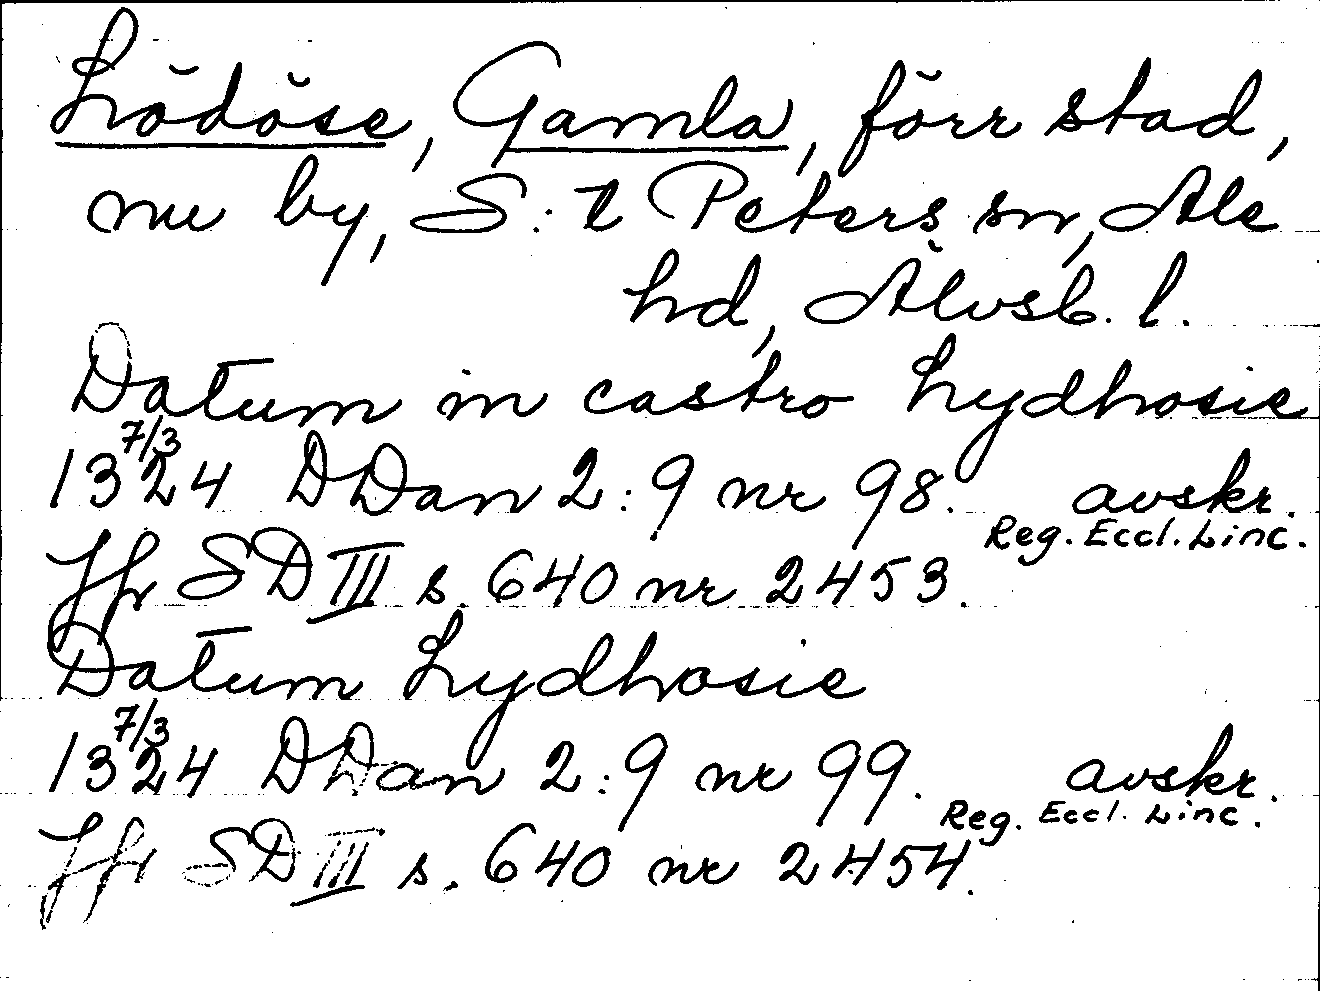 Lödöse, Gamla, förr stad,
nu by, S:t Peters sn, Ale
hd, Älvsb. l.
Datum in castro Lydhosie
7/3
1324 DDan 2:9 nr 98. avskr.
Reg. Eccl. Linc.
Jfr SD III s. 640 nr 2453.
Datum Lydhosie
7/3
1324 DDan 2:9 nr 99. avskr.
Reg. Eccl. Linc.
Jfr SD III s. 640 nr 2454.